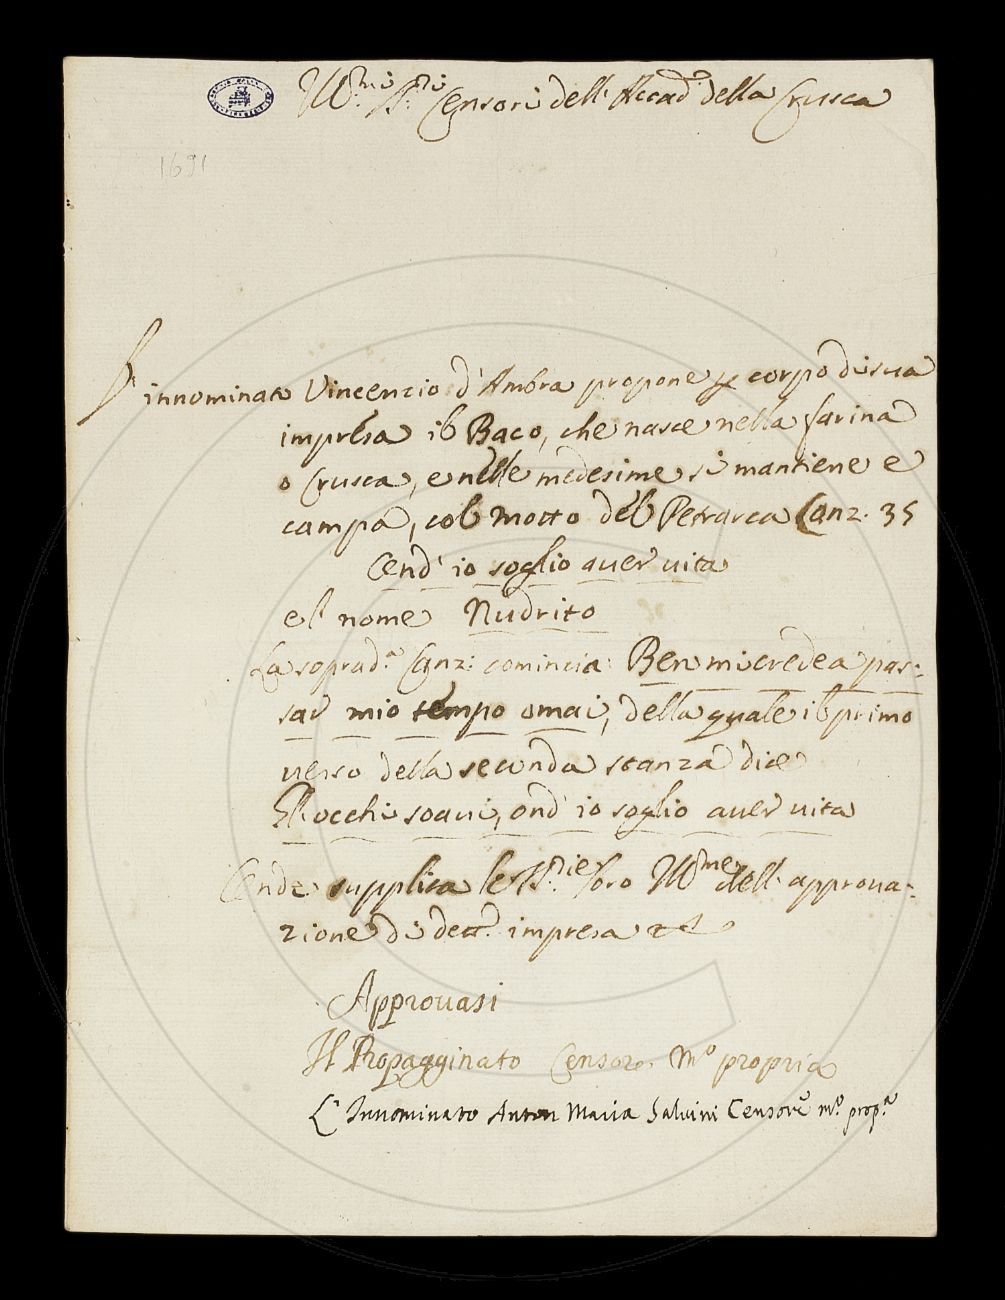 Ill.mi SS.ri Censori dell' Accad.a della Crusca
1691
L' innominato Vincenzio d' Ambra propone p corpo di sua
impresa il Baco, che nasce nella farina
o Crusca, e nelle medesime si mantiene e
campa, col motto del Petrarca Canz. 35
Ond' io soglio aver vita
e l' nome Nudrito
La soprad.a Canz: comincia: Ben mi credea pas-
sar mio tempo omai, della quale il primo
verso della seconda stanza dice
Gl' occhi soavi, ond' io soglio aver vita
Onde supplica le SS.rie loro Ill.me dell' approva-
zione di dett.a impresa
Approvasi
Il Propagginato Censore. M.o propria
L' Innominato Anton Maria Salvini Censore m.o prop.a